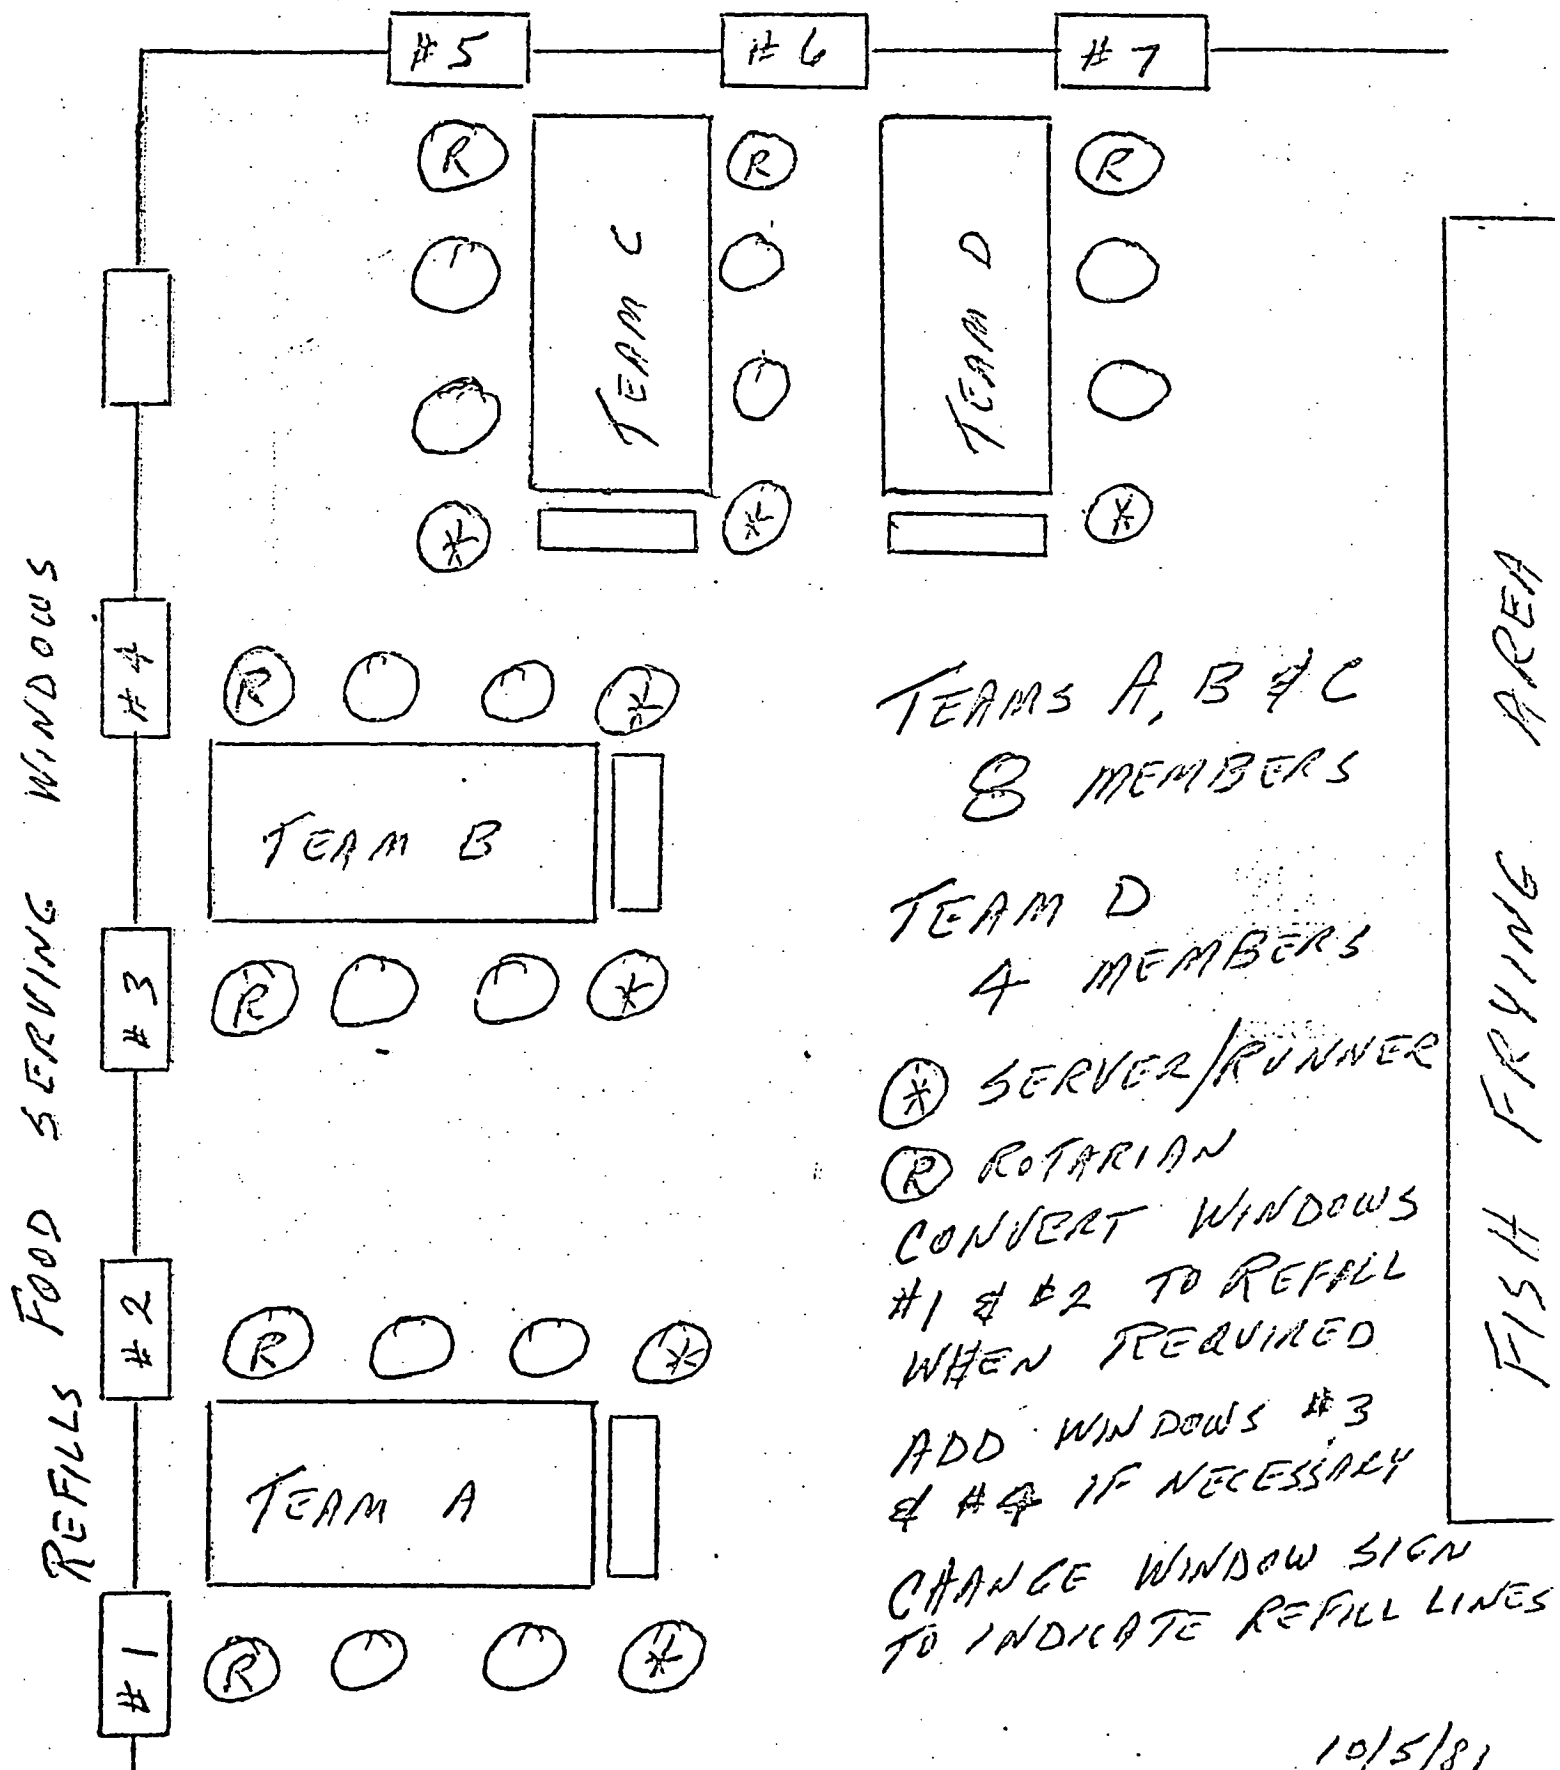 #5
#6
#7
R
R
R
TEAM C
TEAM D
*
*
*
#4
R
*
TEAM B
#3
R
*
#2
R
*
TEAM A
#1
R
*
REFILLS FOOD SERVING WINDOWS
TEAMS A, B & C
8 MEMBERS
TEAM D
4 MEMBERS
* SERVER/RUNNER
R ROTARIAN
CONVERT WINDOWS
#1 & #2 TO REFILL
WHEN REQUIRED
ADD WINDOWS #3
& #4 IF NECESSARY
CHANGE WINDOW SIGN
TO INDICATE REFILL LINES
FISH FRYING AREA
10/5/81